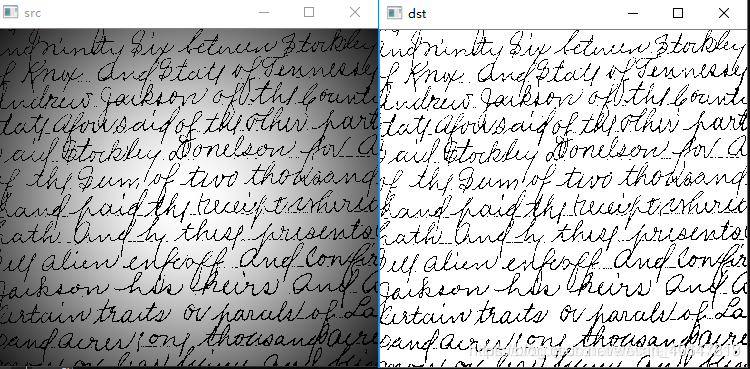 src
dst
indninity Six between Stockley
of Knox And State of Tennessey
Andrew Jackson of the Count
tate aforesaid of the other part
Paul Stockley Donelson for a
of the Sum of two thousand
hand paid the receipt whereo
hath And by these presents
ell alien enfeoff And confir
Jackson his heirs And a
certain traits or parcels of La
and acres one thousand acre